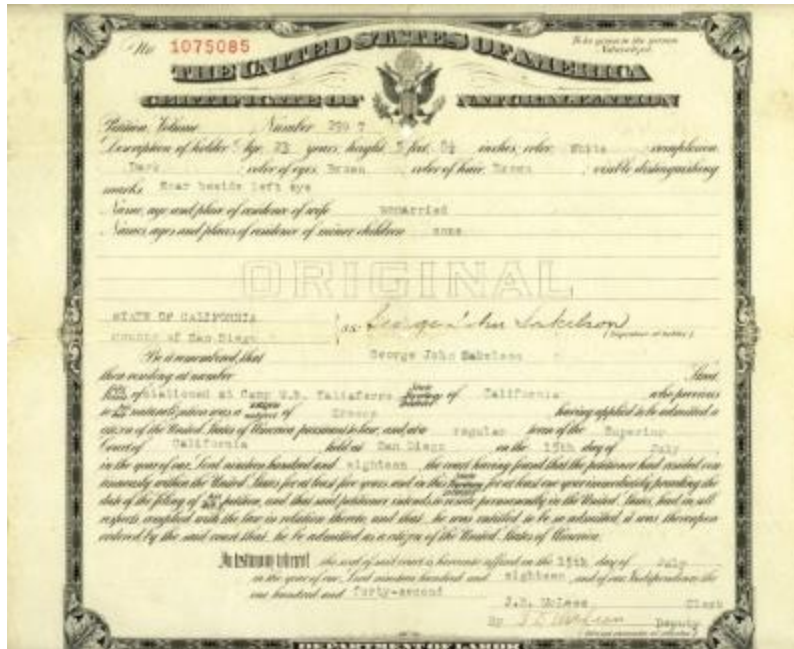 No 1075085
To be given to the person Naturalized.
THE UNITED STATES OF AMERICA
CERTIFICATE OF NATURALIZATION
Petition, Volume Number 290 7
Description of holder: Age, 23 years; height, 5 feet, 8½ inches; color, White; complexion,
Dark; color of eyes, Brown; color of hair, Brown; visible distinguishing
marks, Scar beside left eye
Name, age and place of residence of wife unmarried
Names, ages and places of residence of minor children none
ORIGINAL
STATE OF CALIFORNIA
County of San Diego } ss: George John Sakelson
(Signature of holder)
Be it remembered, that George John Sakelson
then residing at number Street,
stationed at Camp W.R. Taliaferro of California who previous
to his naturalization was a subject of Greece having applied to be admitted a
citizen of the United States of America pursuant to law, and at a regular term of the Superior
Court of California held at San Diego on the 15th day of July
in the year of our Lord nineteen hundred and eighteen the court having found that the petitioner had resided con
tinuously within the United States for at least five years and in this for at least one year immediately preceding the
date of the filing of his petition, and that said petitioner intends to reside permanently in the United States, had in all
respects complied with the law in relation thereto, and that he was entitled to be so admitted, it was thereupon
ordered by the said court that he be admitted as a citizen of the United States of America.
In testimony whereof the seal of said court is hereunto affixed on the 15th day of July
in the year of our Lord nineteen hundred and eighteen and of our Independence the
one hundred and forty-second
J.B. McLees Clerk
By Deputy
DEPARTMENT OF LABOR